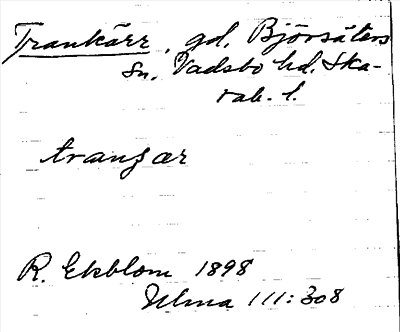 Trankärr, gd, Björsäters
sn, Vadsbo hd. Ska-
rab. l.
R. Ekblom 1898
Ulma 111:308